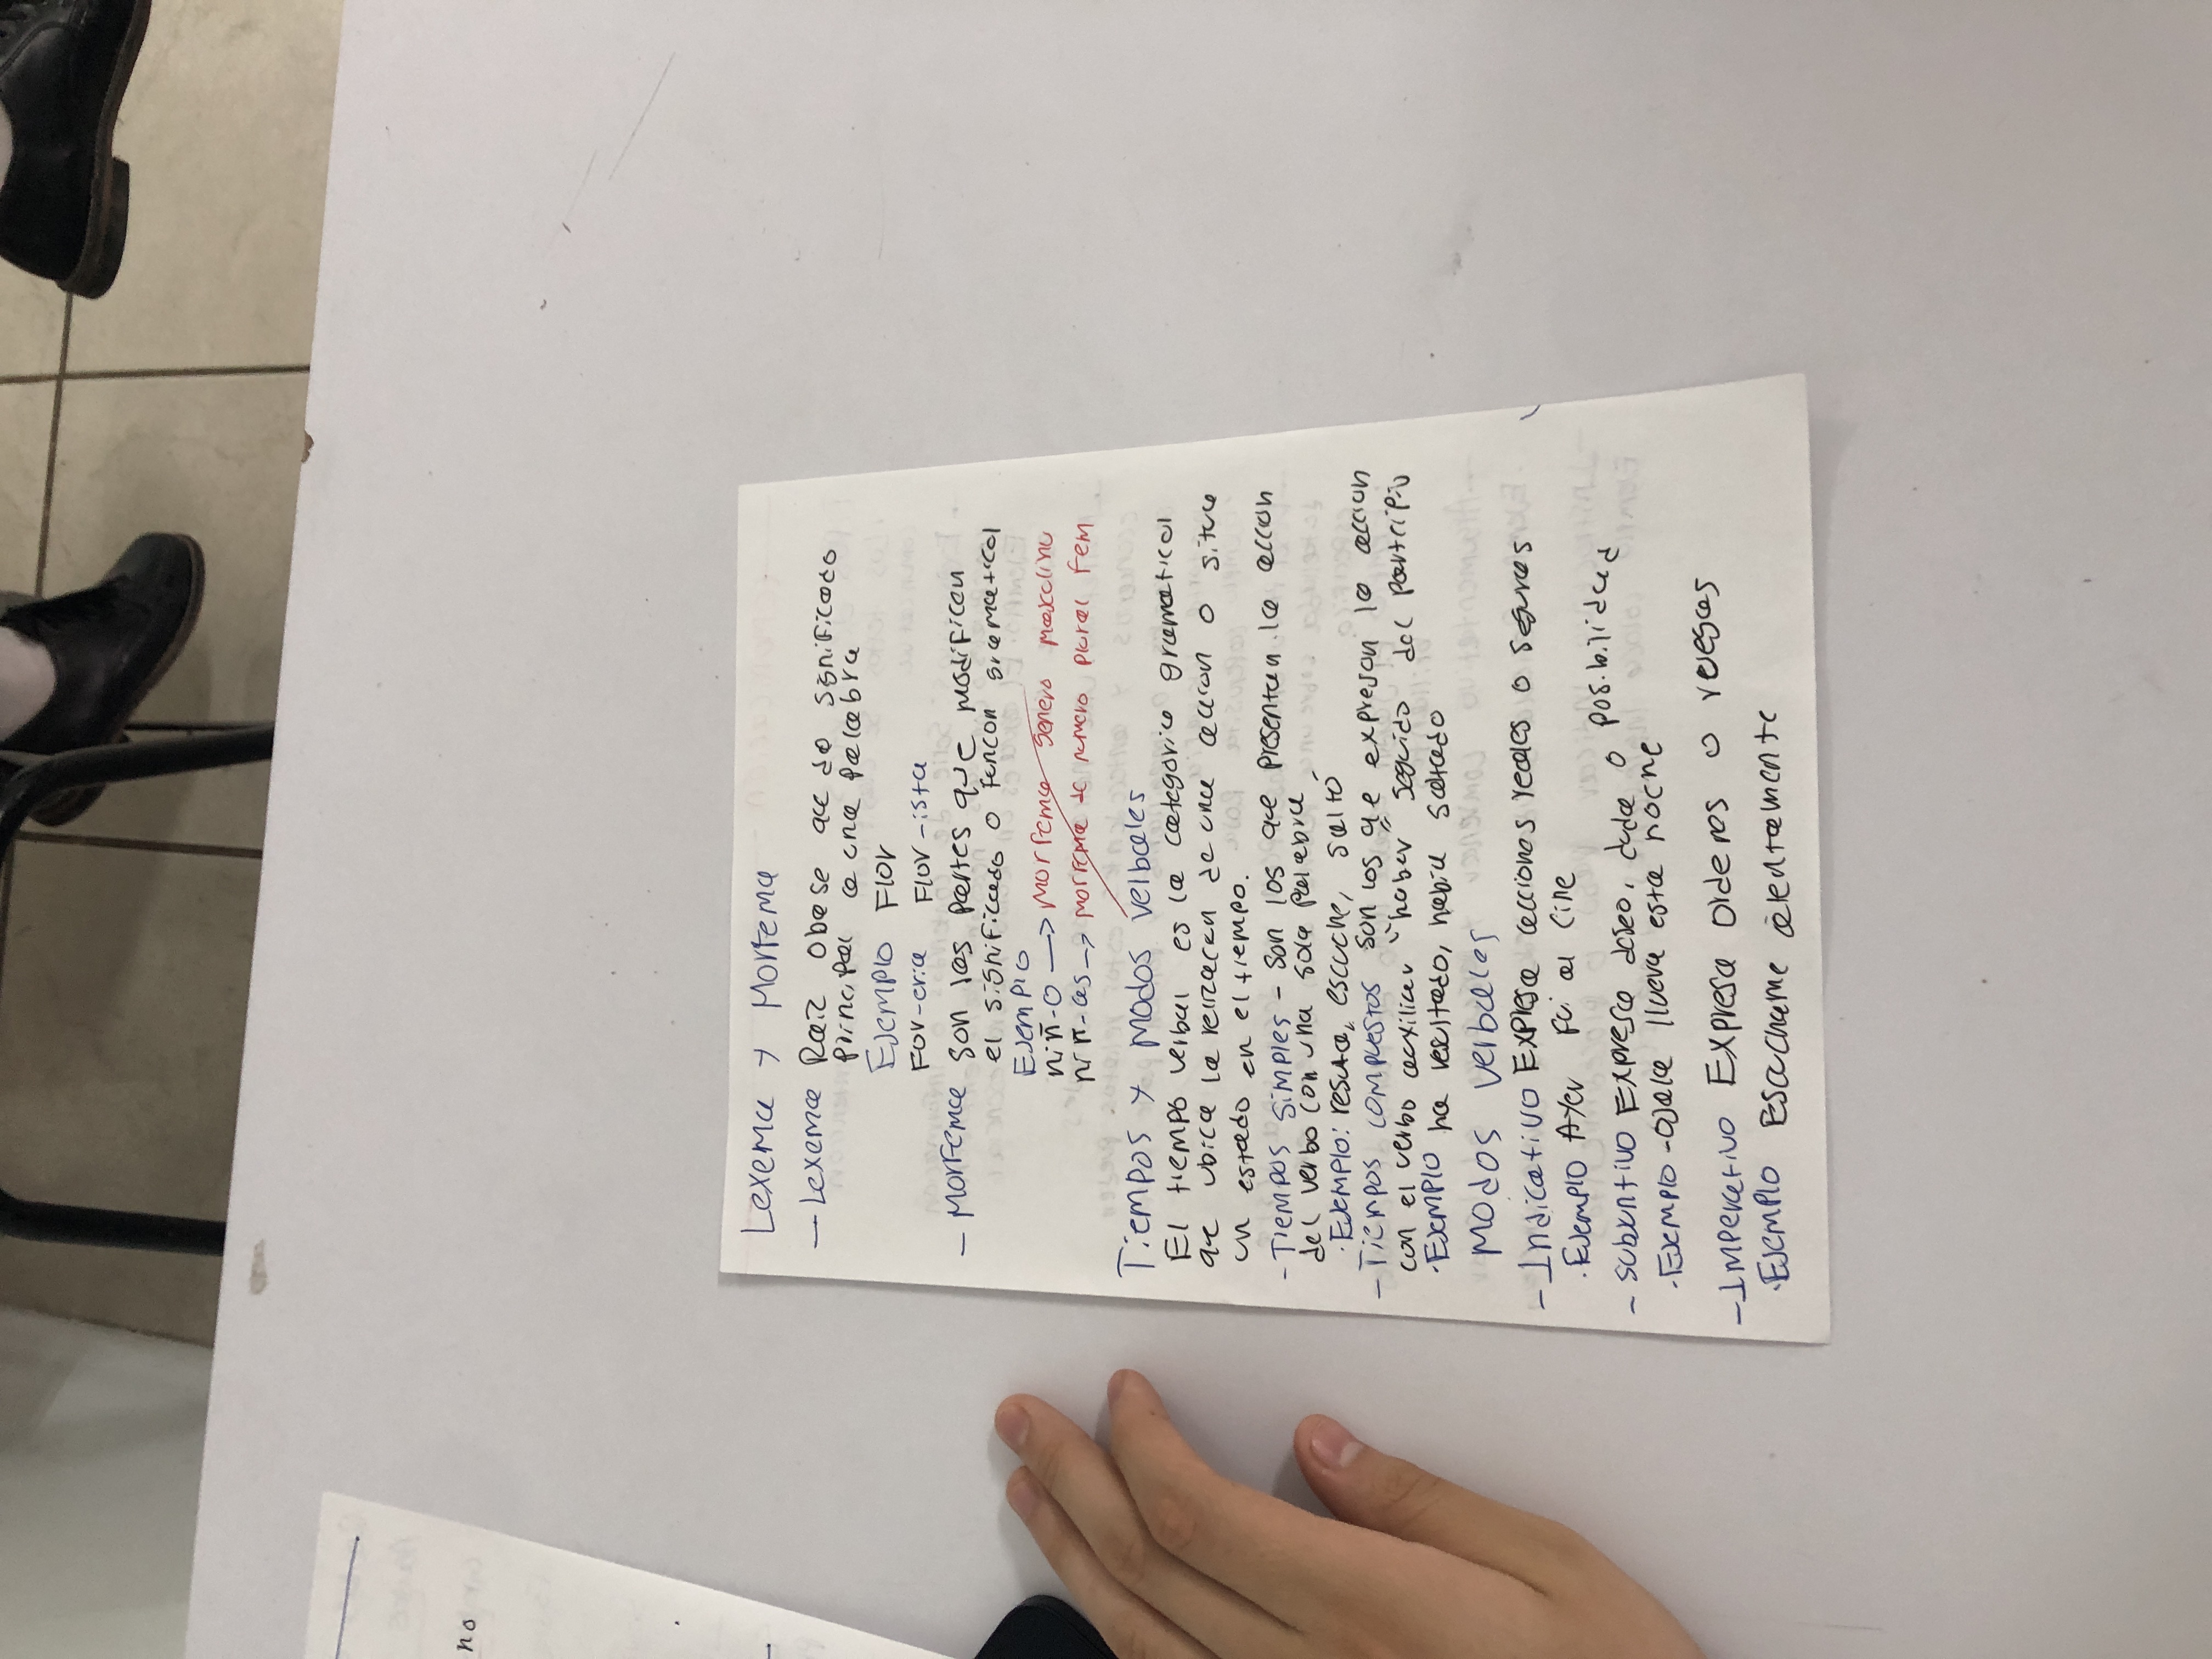 Lexema y Morfema
- Lexema Raiz obase que da significado
principal a una palabra
Ejemplo Flor
For-eria Flor-ista
- Morfema son las partes que modifican
el significado o funcon gramatical
Ejemplo
niñ-o → morfema genero masculino
niñ-as → morfema de numero plural fem
Tiempos y modos verbales
El tiempo verbal es la categoria gramatical
que ubica la reizacan de una accion o situa
un estado en el tiempo.
- Tiempos simples - son los que presentan la accion
del verbo con una sola palabra
· Ejemplo: resuta, escuche, salto
- Tiempos compuestos son los que expresan la accion
con el verbo auxiliar "haber" seguido del participio
· Ejemplo ha resultado, habia saltado
Modos verbales
- Indicativo Expresa acciones reales o seguras
· Ejemplo Ayer fui al cine
- subjuntivo Expresa deseo, duda o posibilidad
· Ejemplo - ojala llueva esta noche
- Imperativo Expresa Ordenes o
· Ejemplo Escuchame atentamente
no